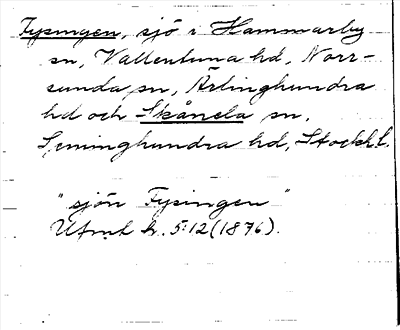 Fysingen, sjö i Hammarby
sn, Vallentuna hd, Norr-
sunda sn, Ärlinghundra
hd och Skånela sn,
Seminghundra hd, Stockh.l.
"sjön Fysingen"
h. 5:12 (1876).